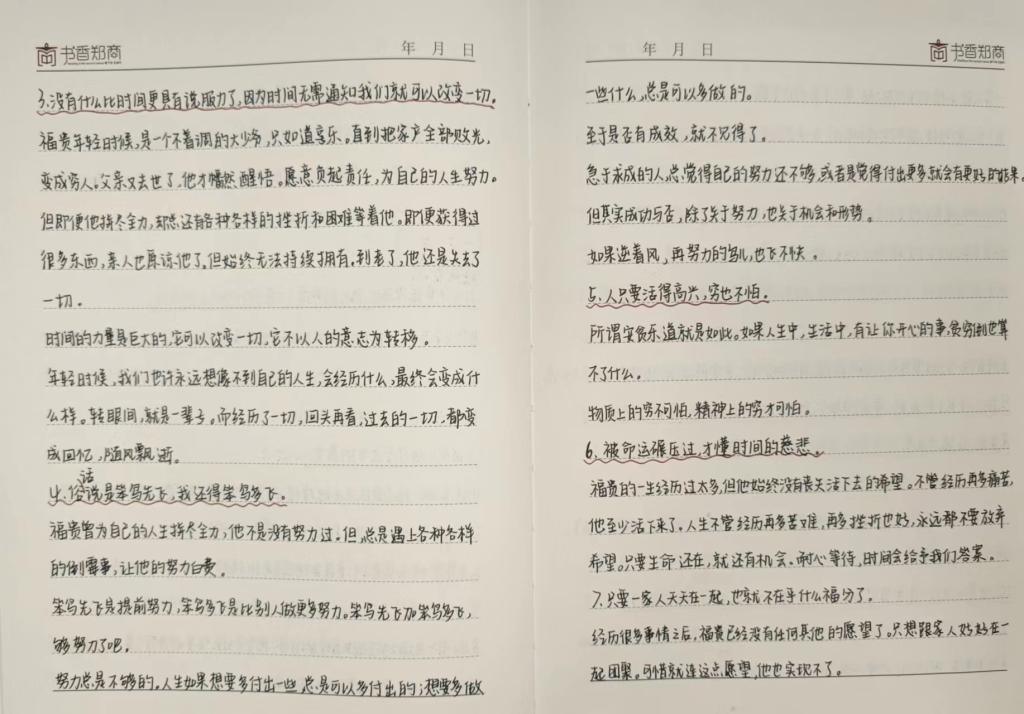 书香郑商
年 月 日
3.没有什么比时间更具有说服力了,因为时间无需通知我们就可以改变一切。
福贵年轻时候,是一个不着调的大少爷,只知道享乐。直到把家产全部败光,
变成穷人。父亲又去世了,他才幡然醒悟。愿意负起责任,为自己的人生努力。
但即便他拼尽全力,却总还有各种各样的挫折和困难等着他。即便获得过
很多东西,亲人也原谅他了。但始终无法持续拥有。到老了,他还是失去了
一切。
时间的力量是巨大的,它可以改变一切,它不以人的意志为转移。
年轻时候,我们也许永远想像不到自己的人生,会经历什么,最终会变成什
么样。转眼间,就是一辈子。而经历了一切,回头再看,过去的一切,都变
成回忆,随风飘逝。
4.俗话说是笨鸟先飞,我还得笨鸟多飞。
福贵曾为自己的人生拼尽全力,他不是没有努力过。但,总是遇上各种各样
的倒霉事,让他的努力白费。
笨鸟先飞是提前努力,笨鸟多飞是比别人做更多努力。笨鸟先飞加笨鸟多飞,
够努力了吧。
努力总是不够的。人生如果想要多付出一些,总是可以多付出的;想要多做
年 月 日
书香郑商
一些什么,总是可以多做的。
至于是否有成效,就不见得了。
急于求成的人,总觉得自己的努力还不够,或者是觉得付出更多就会有更好的结果。
但其实成功与否,除了关于努力,也关于机会和形势。
如果逆着风,再努力的鸟儿,也飞不快。
5、人只要活得高兴,穷也不怕。
所谓安贫乐道就是如此。如果人生中,生活中,有让你开心的事,贫穷倒也算
不了什么。
物质上的穷不可怕,精神上的穷才可怕。
6、被命运碾压过,才懂时间的慈悲。
福贵的一生经历过太多,但他始终没有丧失活下去的希望。不管经历再多痛苦,
他至少活下来了。人生不管经历再多苦难,再多挫折也好,永远都不要放弃
希望。只要生命还在,就还有机会。耐心等待,时间会给予我们答案。
7.只要一家人天天在一起,也就不在乎什么福分了。
经历很多事情之后,福贵已经没有任何其他的愿望了。只想跟家人好好在一
起团聚。可惜就连这点愿望,他也实现不了。